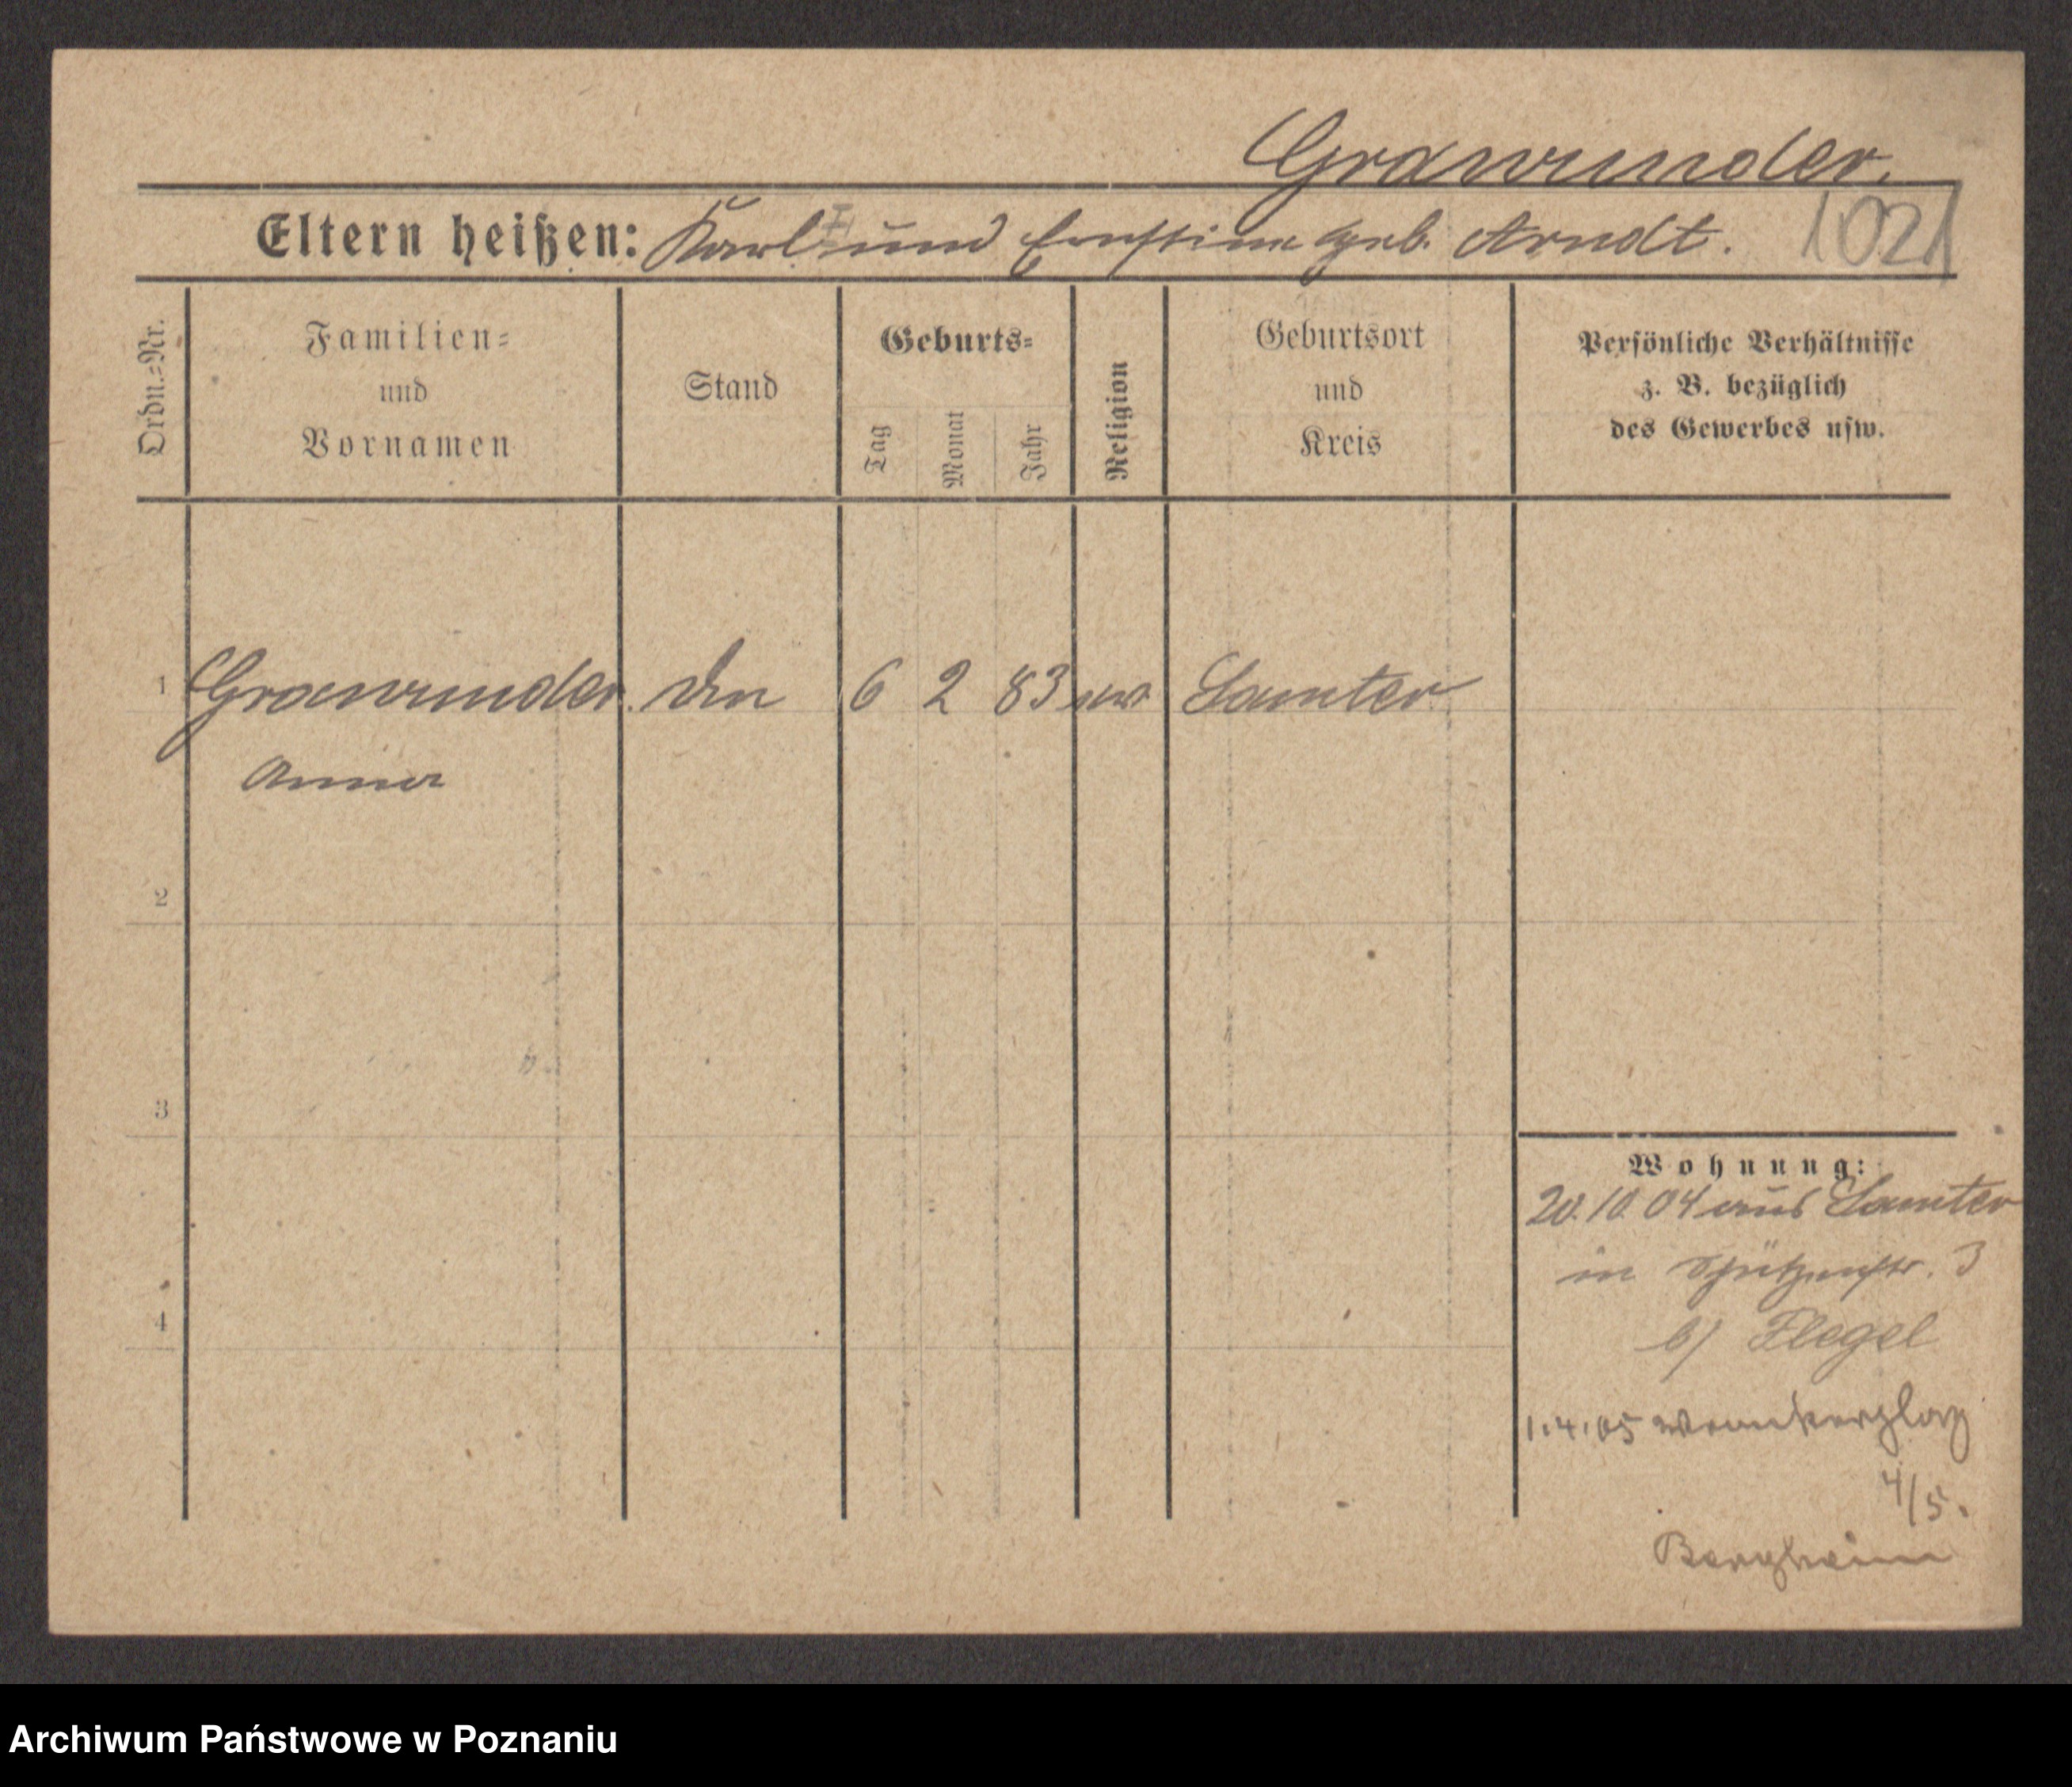 Grawunder.
Eltern heißen: Karl und Ernstine geb. Arndt. 1021
Ordn.=Nr.
Familien=
und
Vornamen
Stand
Geburts=
Tag
Monat
Jahr
Religion
Geburtsort
und
Kreis
Persönliche Verhältnisse
z. B. bezüglich
des Gewerbes usw.
1 Grawunder. 6 2 83 ev Samter
Anna
2
3
4
Wohnung:
20.10.04 aus Samter
in Schützenstr. 3
b/ Flegel
1.4.05
4/5.
Bergheim
Archiwum Państwowe w Poznaniu